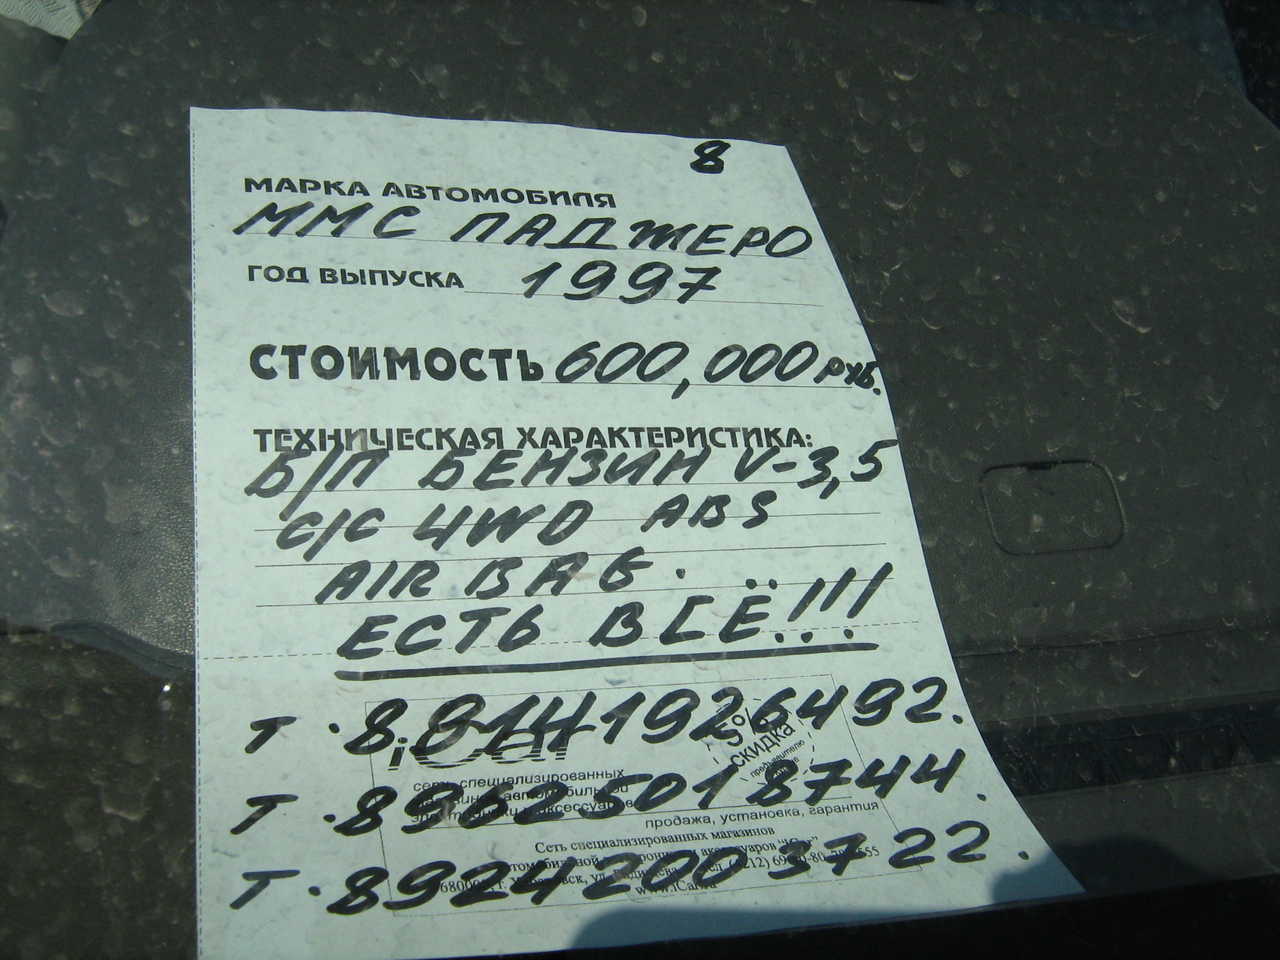 8
МАРКА АВТОМОБИЛЯ
ММС ПАДЖЕРО
ГОД ВЫПУСКА 1997
СТОИМОСТЬ 600,000 РУБ.
ТЕХНИЧЕСКАЯ ХАРАКТЕРИСТИКА:
Б/П БЕНЗИН V-3,5
С/С 4WD ABS
AIR BAG.
ЕСТЬ ВСЁ!!!
Т. 89141926492.
iCar
5% СКИДКА
предъявителю
сеть специализированных
Т. 89625018744.
продажа, установка, гарантия
Сеть специализированных магазинов
Т. 89242003722.